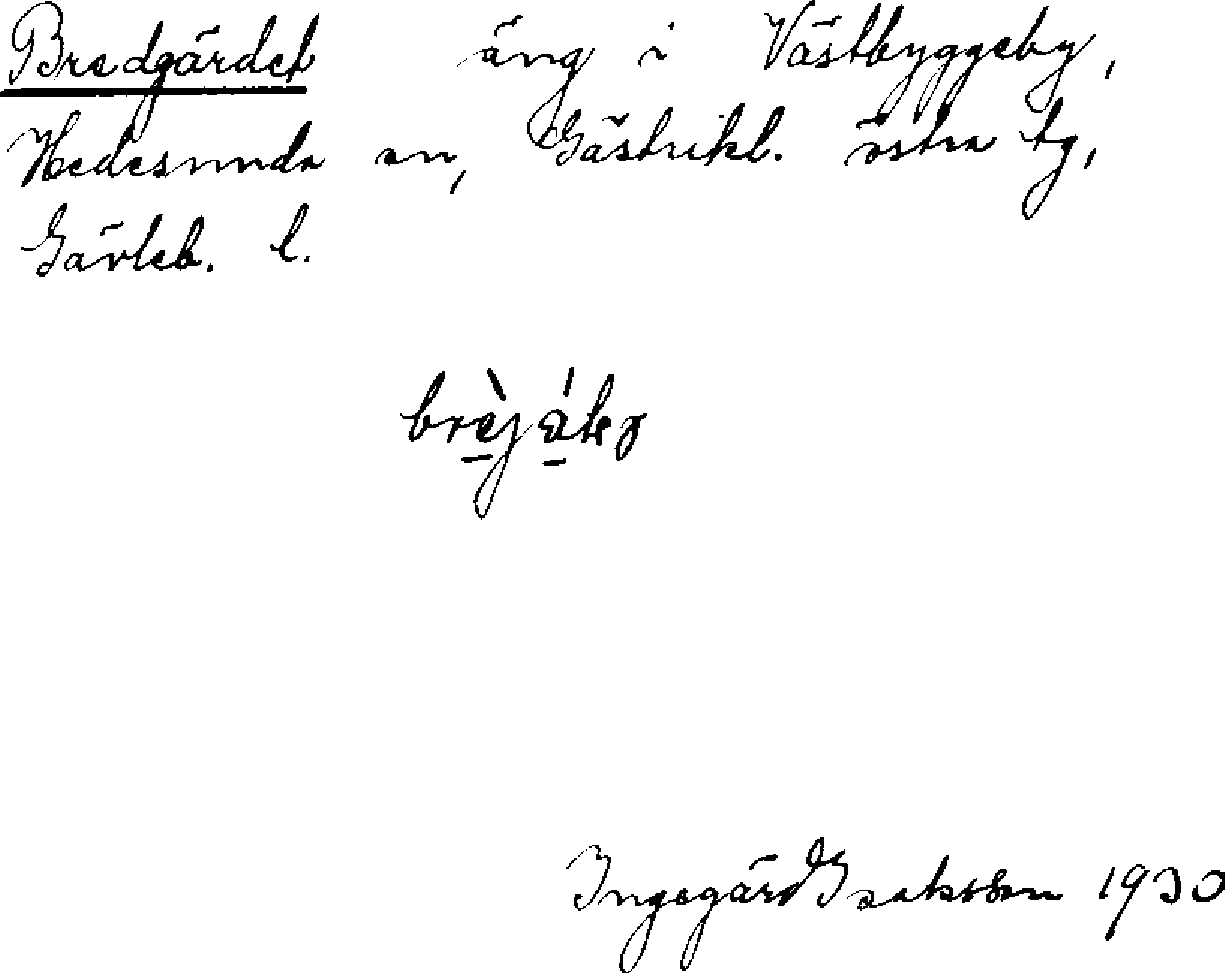 Bredgärdet äng i Västbyggeby,
Hedesunda sn, Gästrikl. östra tg,
Gävleb. l.
Ingegärd Isaksson 1930